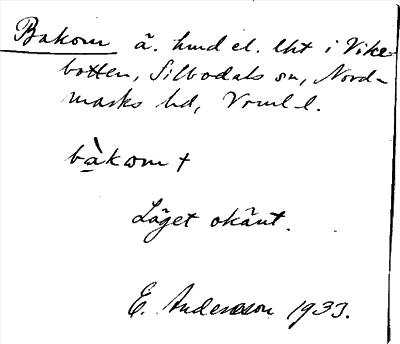 Bakom ä. hmd el. lht i Vike-
botten, Silbodals sn, Nord-
marks hd, Vrml. l.
bàkom +
Läget okänt.
E. Andersson 1933.